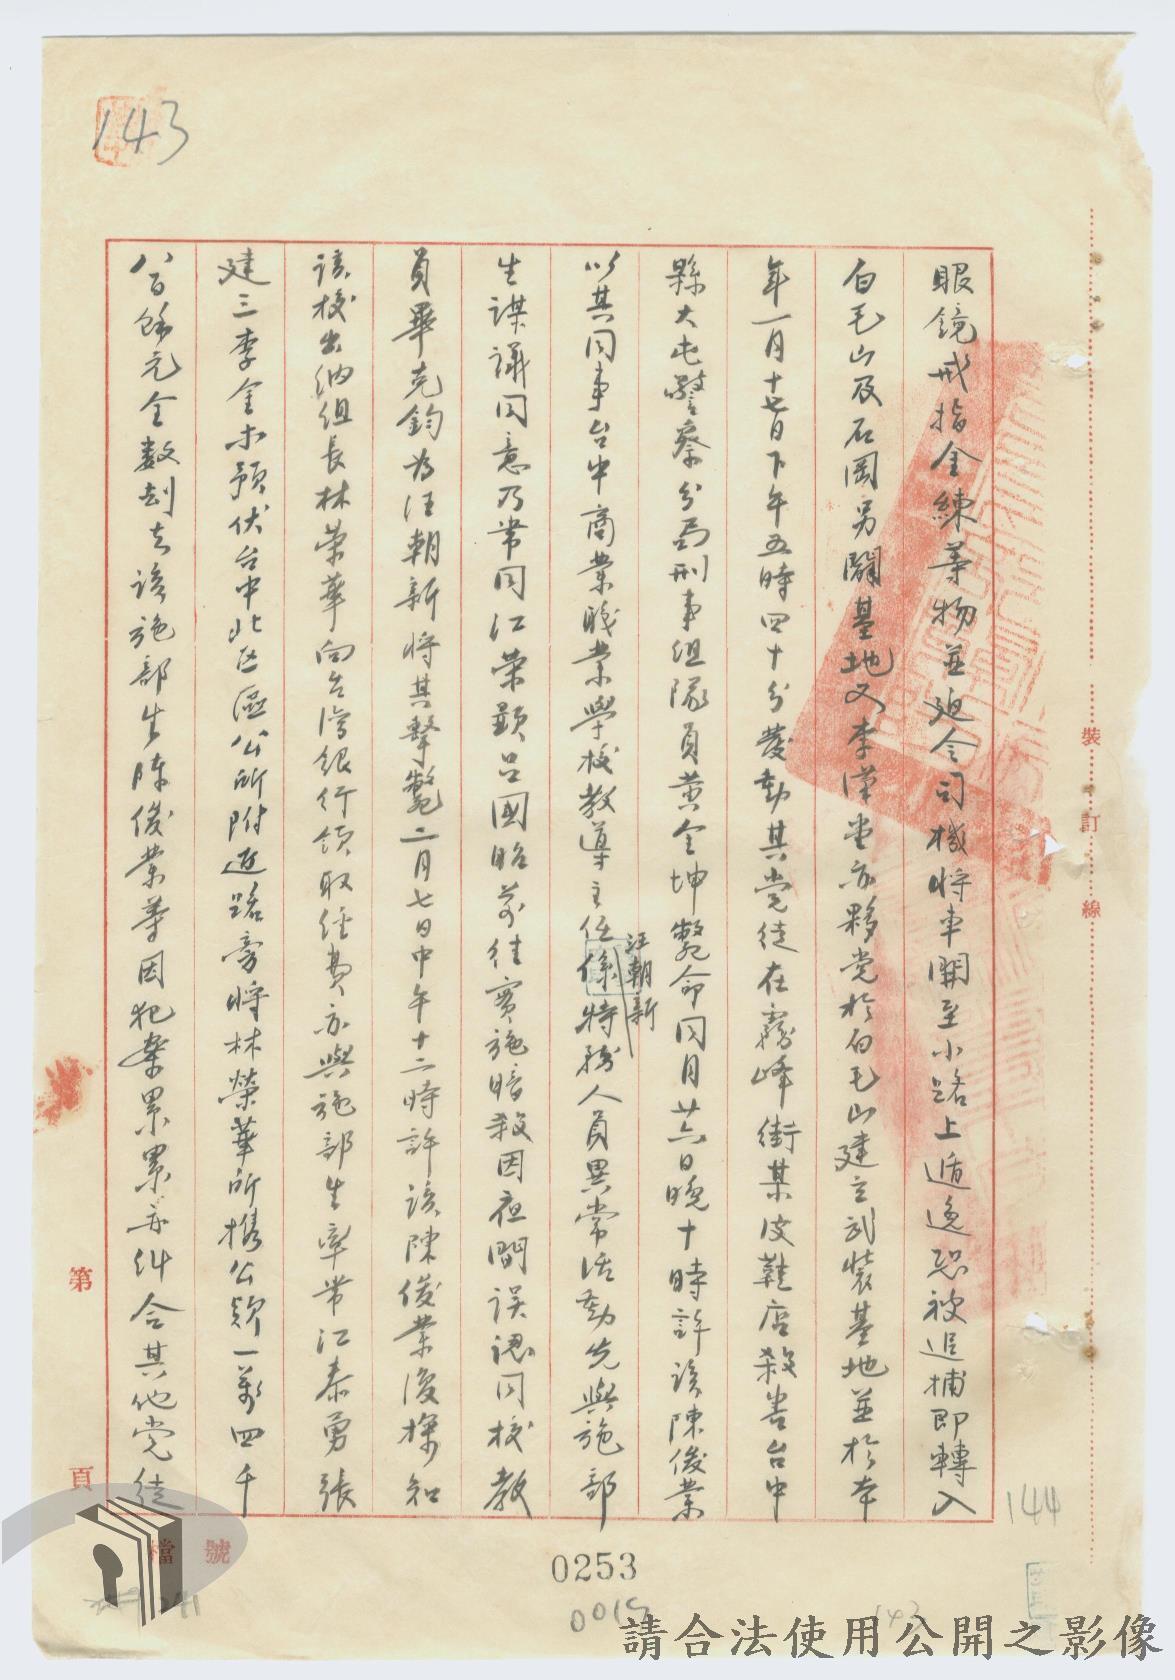 143
眼鏡戒指金練等物並廹令司機將車開至小路上遁逸恐被追捕即轉入
白毛山及石岡另闢基地又李漢堂亦夥党於白毛山建立武裝基地並於本
年一月十七日下午五時四十分發動其党徒在霧峰街某皮鞋店殺害台中
縣大屯警察分局刑事組隊員黃金坤斃命同月廿六日晚十時許該陳俊業
以其同事台中商業職業學校教導主任係特務人員異常活動先與施部
汪朝新
生謀議同意乃常同江荣顕呂國昭前往實施暗殺因夜間误認同校教
員畢克鈞為汪朝新將其擊斃二月七日中午十二時許該陳俊業復探知
該校出納组長林荣華向台湾銀行領取经費亦與施部生率帶江泰勇張
建三李金木預伏台中北区區公所附近路旁將林榮華所携公欵一萬四千
八百餘元全数刧去該施部生陳俊業等因犯案累累並糾合其他党徒
裝訂線
第頁
檔號
144
0253
0019
143
請合法使用公開之影像